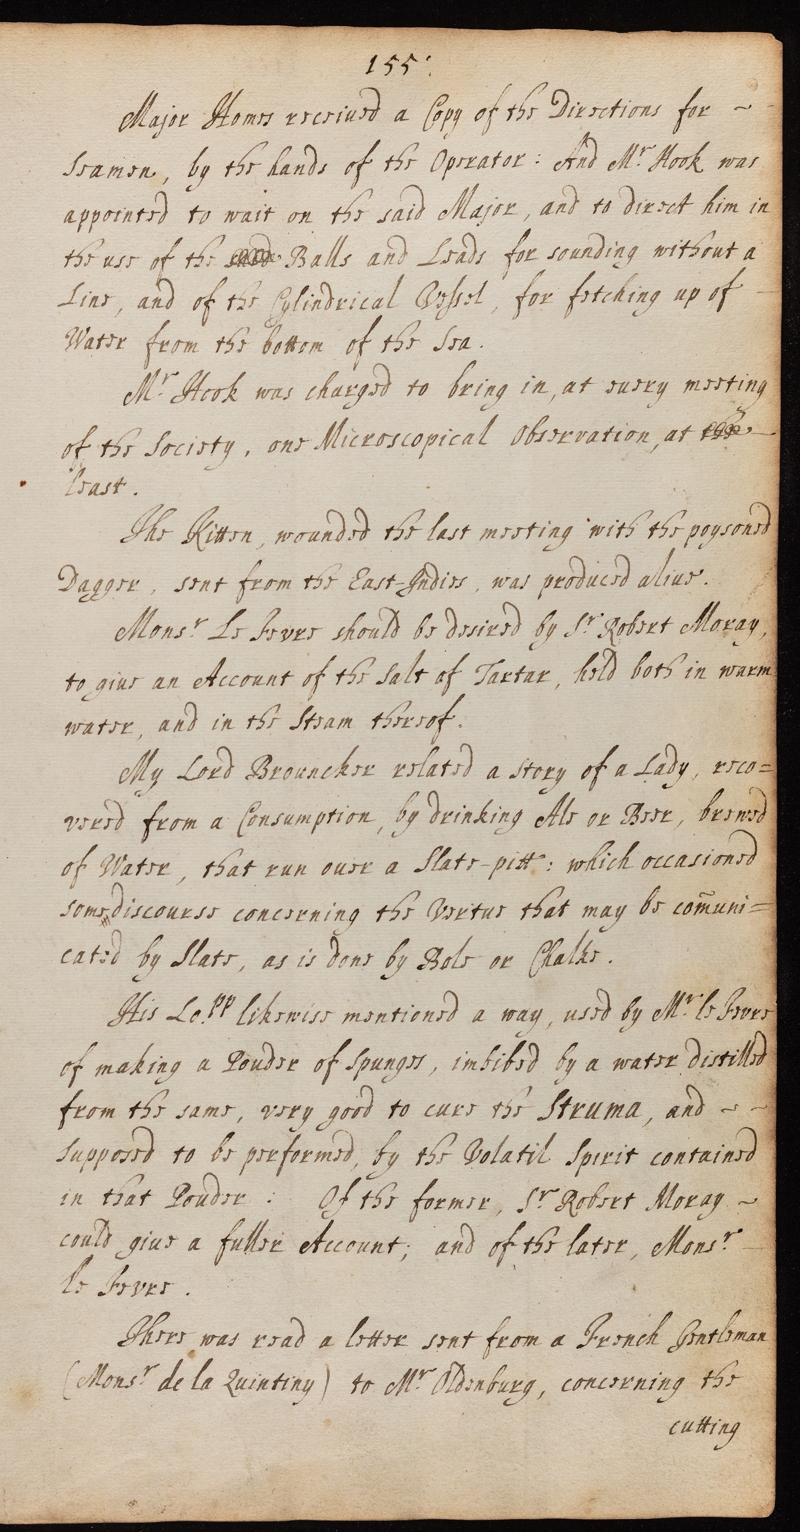 155.
Major Homes received a Copy of the Directions for ~
Seamen, by the hands of the Operator: And Mr. Hook was
appointed to wait on the said Major, and to direct him in
the use of the Balls and Leads for sounding without a
Line, and of the Cylindrical Vessel, for fetching up of
Water from the bottom of the Sea.
Mr. Hook was charged to bring in, at every meeting
of the Society, one Microscopical Observation, at the
least.
The Kitten, wounded the last meeting with the poysoned
Dagger, sent from the East-Indies, was produced alive.
Monsr. Le Fevre should be desired by Sr. Robert Moray,
to give an Account of the Salt of Tartar, held both in warm
water, and in the Steam thereof.
My Lord Brouncker related a story of a Lady, reco=
vered from a Consumption, by drinking Ale or Beer, brewed
of Water, that run over a Slate-pitt: which occasioned
some discourse concerning the Vertue that may be com̄uni=
cated by Slate, as is done by Bole or Chalke.
His Lo.pp likewise mentioned a way, used by Mr. le Fevre
of making a Pouder of Spunges, imbibed by a water distilled
from the same, very good to cure the Struma, and ~ ~
supposed to be performed, by the Volatil Spirit contained
in that Pouder : Of the former, Sr. Robert Moray ~
could give a fuller Account; and of the later, Monsr.
le Fevre.
There was read a letter sent from a French Gentleman
(Monsr. de la Quintiny) to Mr. Oldenburg, concerning the
cutting